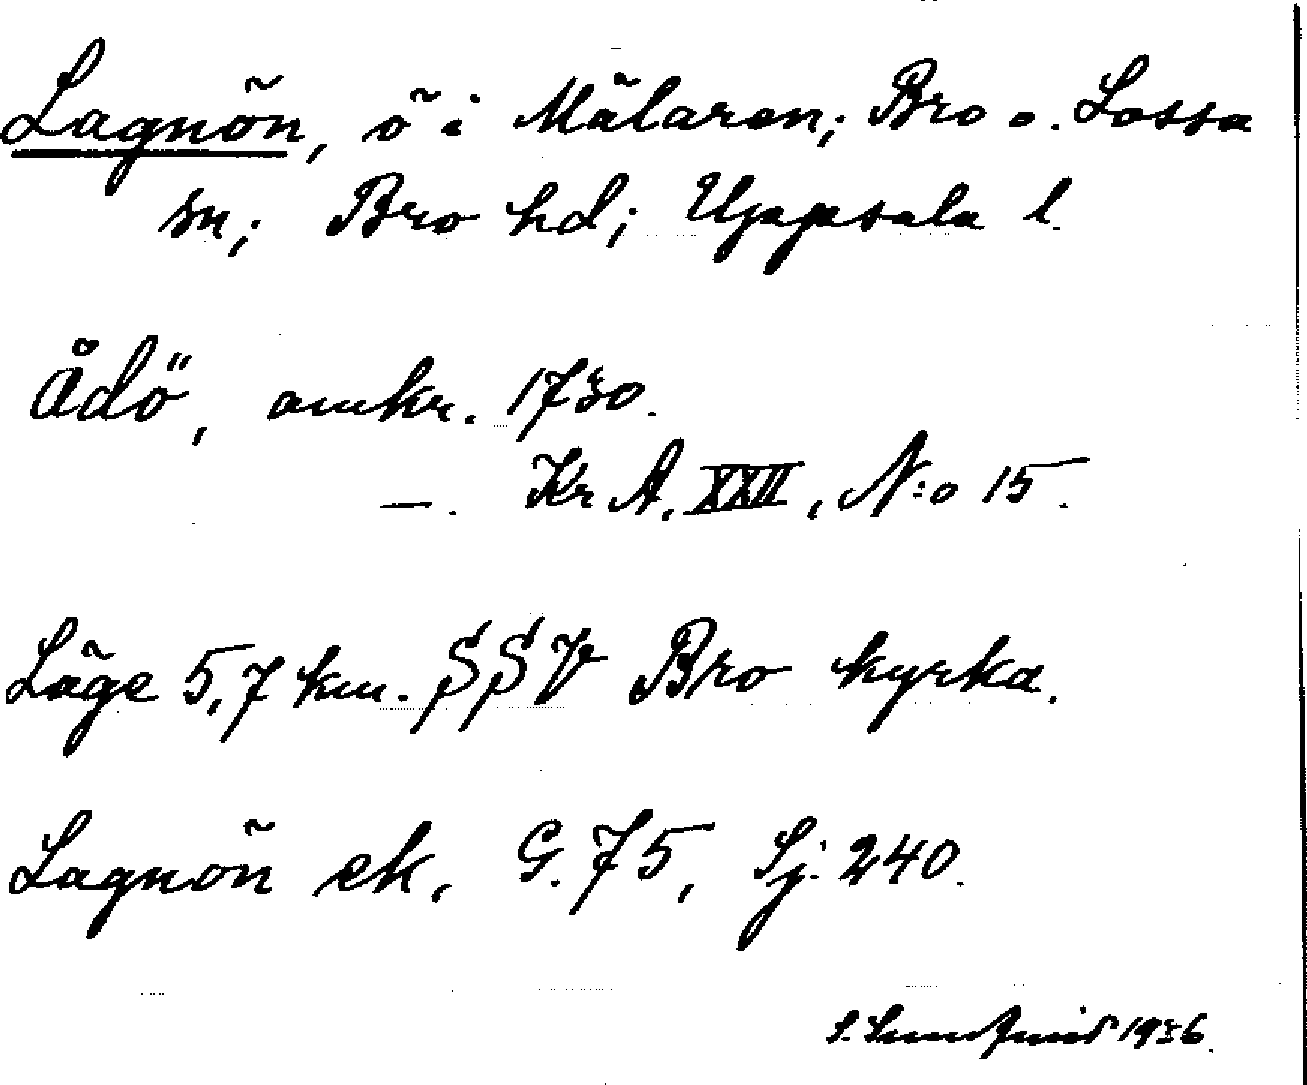 Lagnön, ö i Mälaren; Bro o. Lossa
sn; Bro hd; Uppsala l.
Ådö, omkr. 1730.
—. Kr A. XXII, N:o 15.
Läge 5,7 km. SSV Bro kyrka.
Lagnön ek. G. 75, Sj. 240.
S. 1936.